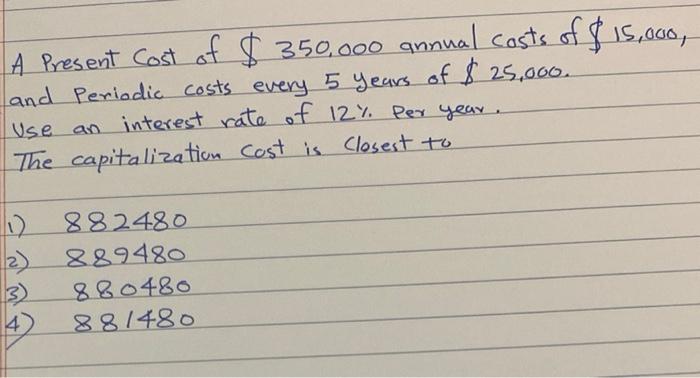 A Present Cost of $ 350,000 annual costs of $ 15,000,
and Periodic costs every 5 years of $ 25,000.
Use an interest rate of 12% Per year.
The capitalization cost is closest to
1) 882480
2) 889480
3) 880480
4) 881480